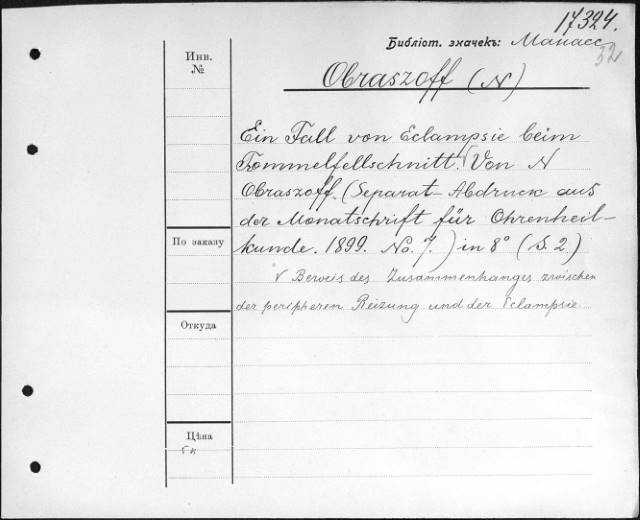 17324.
Библіот. значекъ: Манасс
32
Инв.
№
Obraszoff (N)
Ein Fall von Eclampsie beim
Trommelfellschnitt. √ Von N
Obraszoff. (Separat-Abdruck aus
der Monatschrift für Ohrenheil-
kunde. 1899. No. 7.) in 8° (S. 2)
По заказу
√ Beweis des Zusammenhanges zwischen
der peripheren Reizung und der Eclampsie
Откуда
Цѣна
5 к